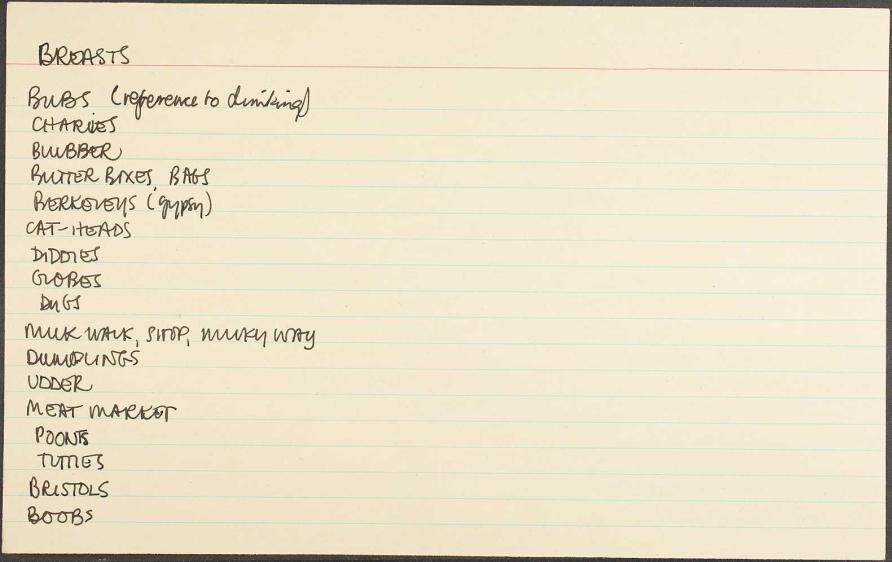 BREASTS
BUBS (reference to drinking)
CHARLIES
BLUBBER
BUTTER BOXES, BAGS
BERKELEYS (gypsy)
CAT-HEADS
DIDDIES
GLOBES
DUGS
MILK WALK, SHOP, MILKY WAY
DUMPLINGS
UDDER
MEAT MARKET
POONTS
TITTIES
BRISTOLS
BOOBS